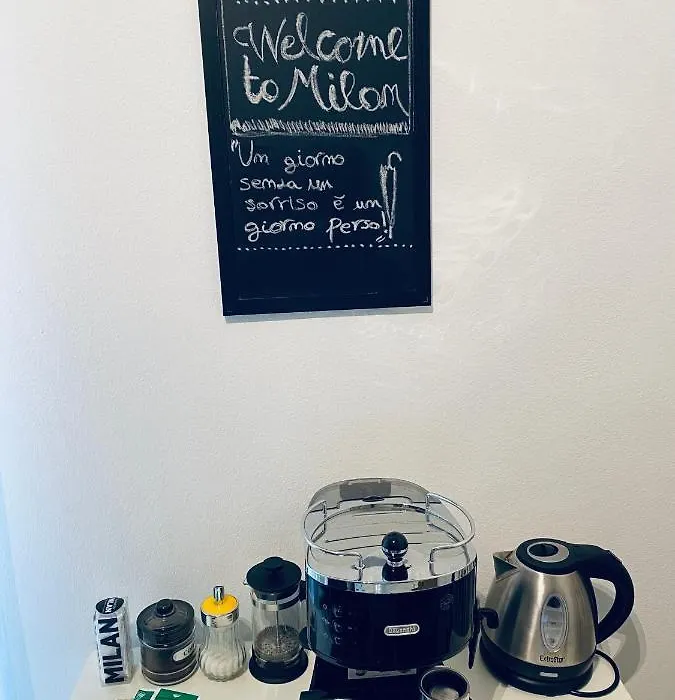 Welcome
to Milan
"Un giorno
senza un
sorriso è un
giorno perso!"
MILAN
DeLonghi